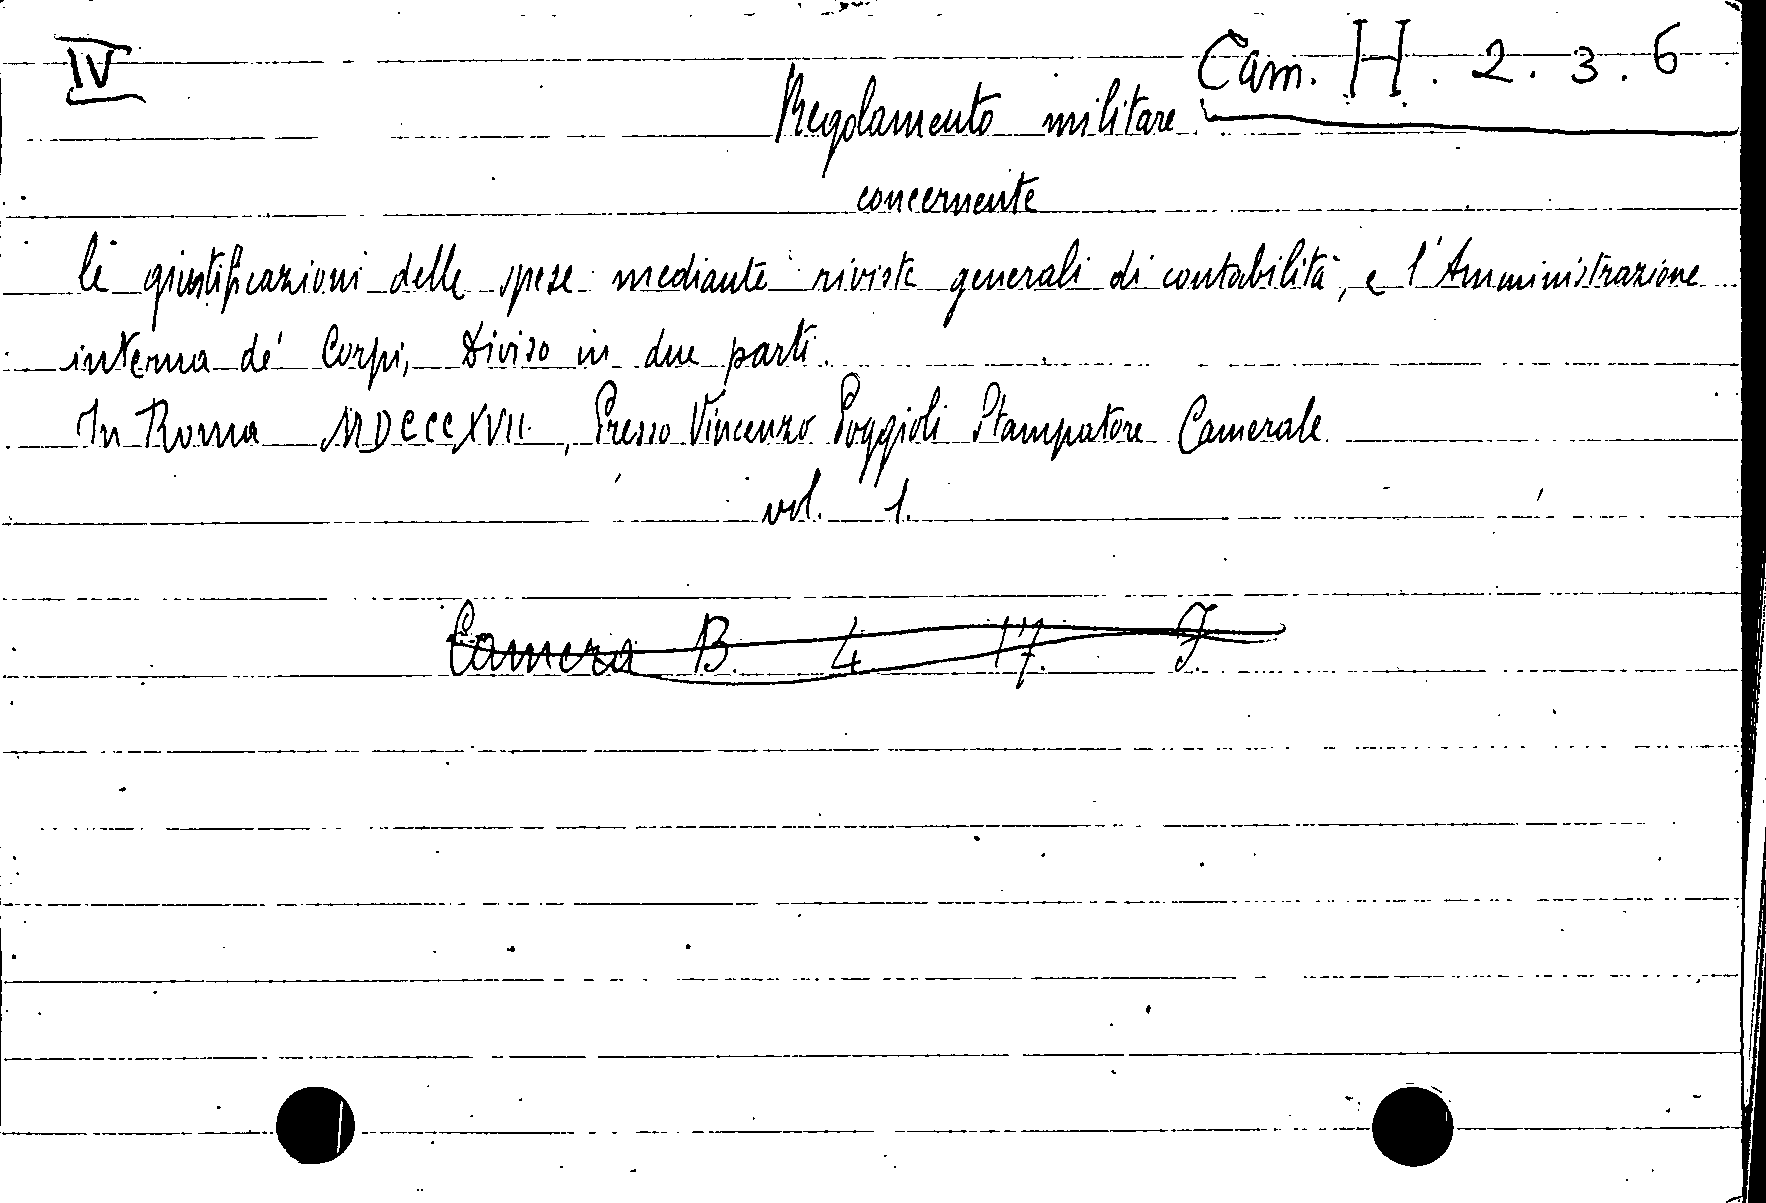 IV
Cam. H. 2. 3. 6
Regolamento militare
concernente
le giustificazioni delle spese mediante riviste generali di contabilità, e l'Amministrazione
interna de' Corpi, Diviso in due parti.
In Roma MDCCCXVII, Presso Vincenzo Poggioli Stampatore Camerale
vol. 1.
Camera B. 4 17. J.